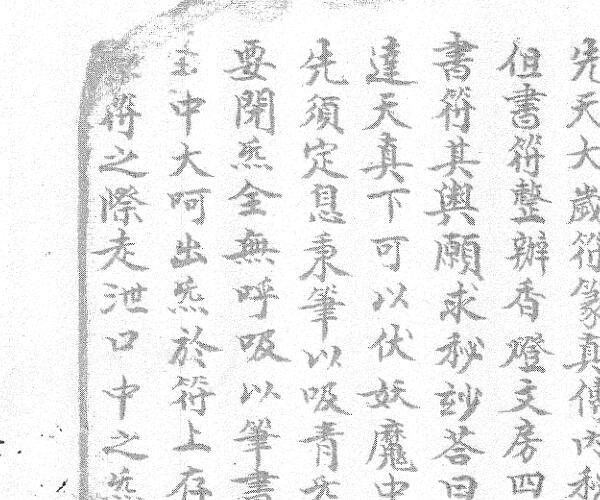 先天大歲符篆真傳內秘
但書符整辦香燈文房四
書符其輿願求秘訣荅曰
達天真下可以伏妖魔中
先須定息秉筆以吸青天
要閉炁全無呼吸以筆書
中大呵出炁於符上存
符之際走泄口中之炁